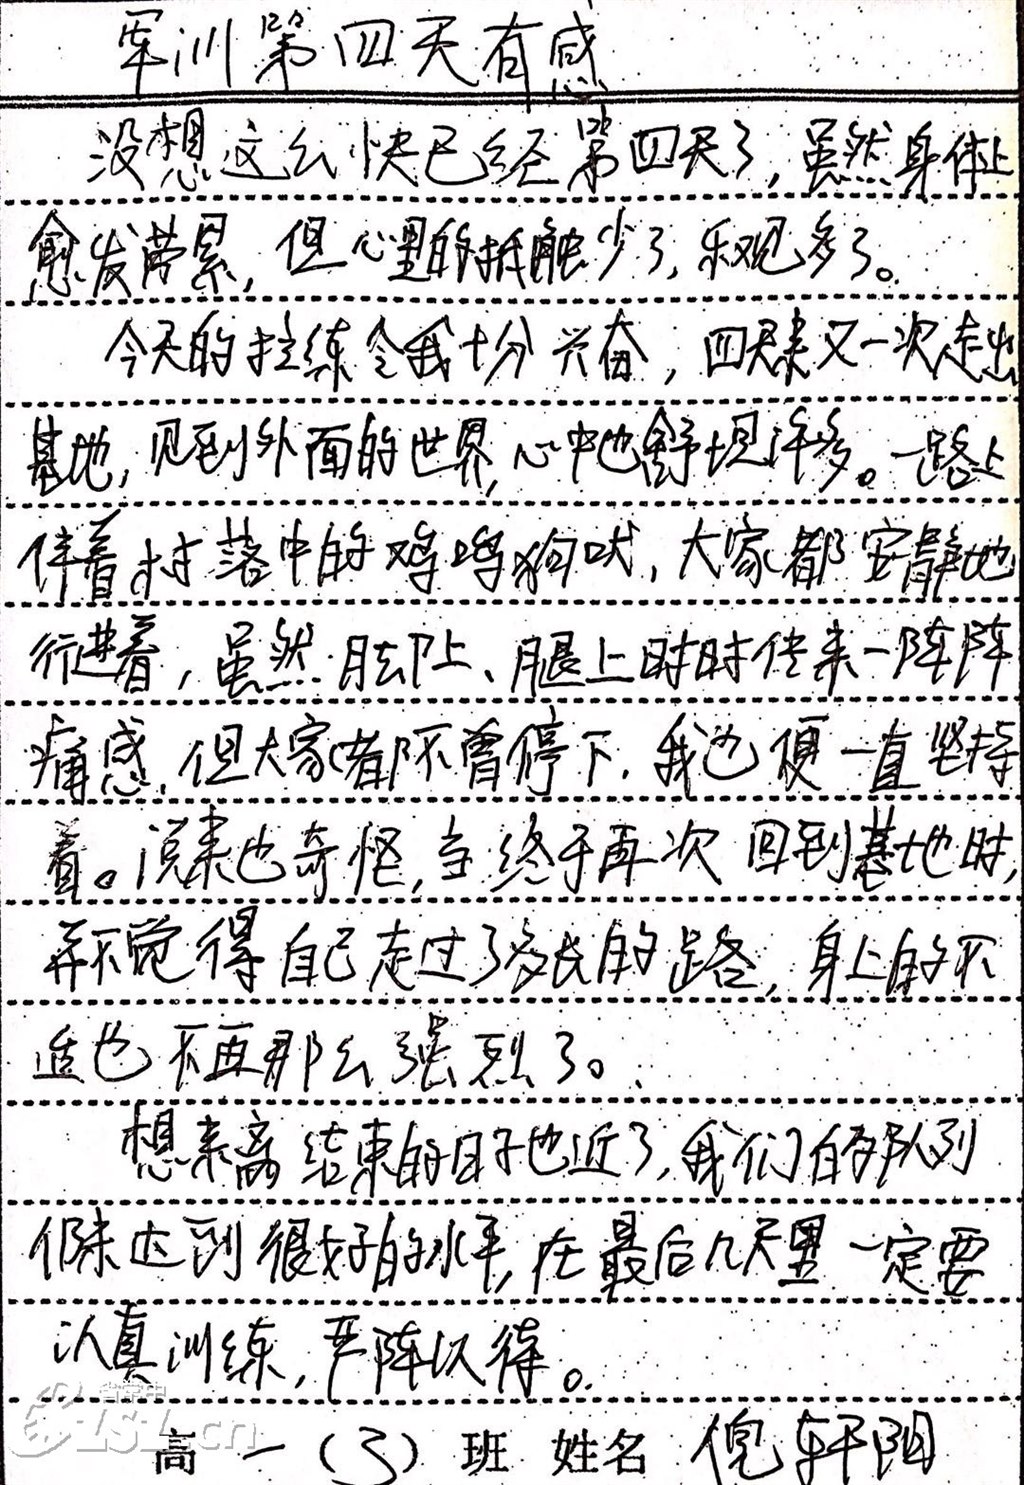 军训第四天有感
没想这么快已经第四天了,虽然身体上
愈发劳累,但心里的抵触少了,乐观多了。
今天的拉练令我十分兴奋,四天来又一次走出
基地,见到外面的世界,心中也舒坦许多。一路上
伴着村落中的鸡鸣狗吠,大家都安静地
行进着,虽然脚上、腿上时时传来一阵阵
痛感,但大家都不曾停下,我也便一直坚持
着。说来也奇怪,当终于再次回到基地时,
并不觉得自己走过了多长的路,身上的不
适也不再那么强烈了。
想来离结束的日子也近了,我们的队列
仍未达到很好的水平,在最后几天里一定要
认真训练,严阵以待。
高一(3)班 姓名 倪轩阳
省宁中
ZSZ.cn